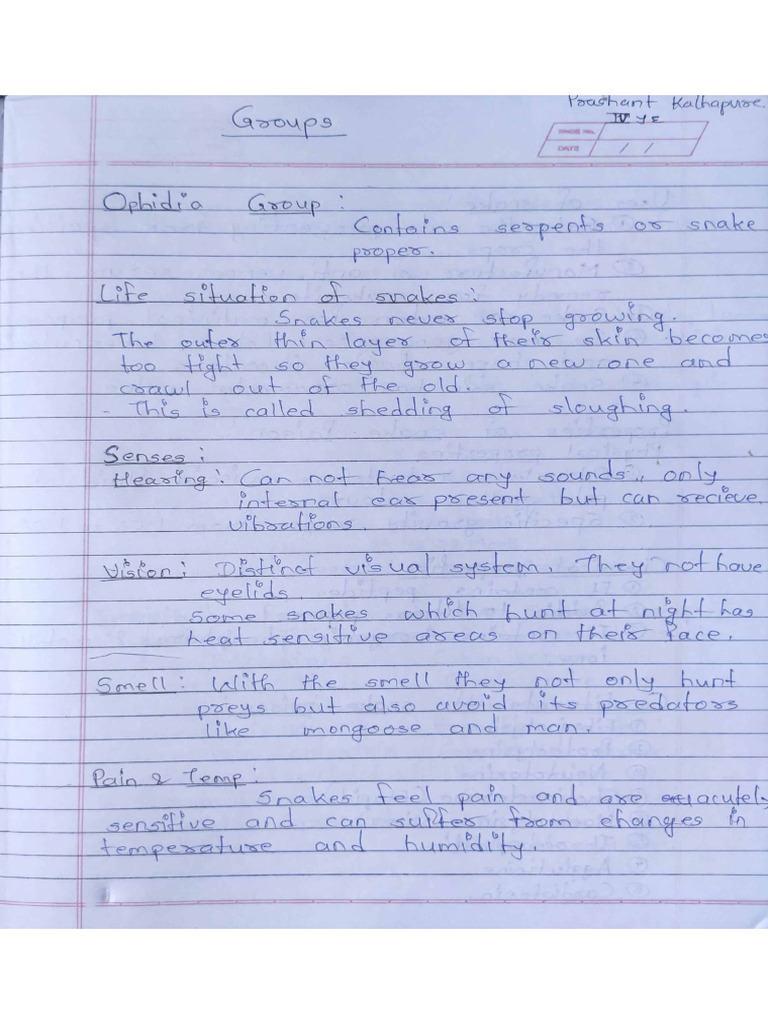 Prashant Kalhapure.
IV YE
Groups
PAGE NO.
DATE / /
Ophidia Group :
Contains serpents or snake
proper.
Life situation of snakes :
Snakes never stop growing.
The outer thin layer of their skin becomes
too tight so they grow a new one and
crawl out of the old.
- This is called shedding of sloughing.
Senses :
Hearing : Can not hear any sounds, only
internal ear present but can recieve
vibrations.
Vision : Distinct visual system. They not have
eyelids.
Some snakes which hunt at night has
heat sensitive areas on their face.
Smell : With the smell they not only hunt
preys but also avoid its predators
like mongoose and man.
Pain & Temp :
Snakes feel pain and are acutely
sensitive and can suffer from changes in
temperature and humidity.